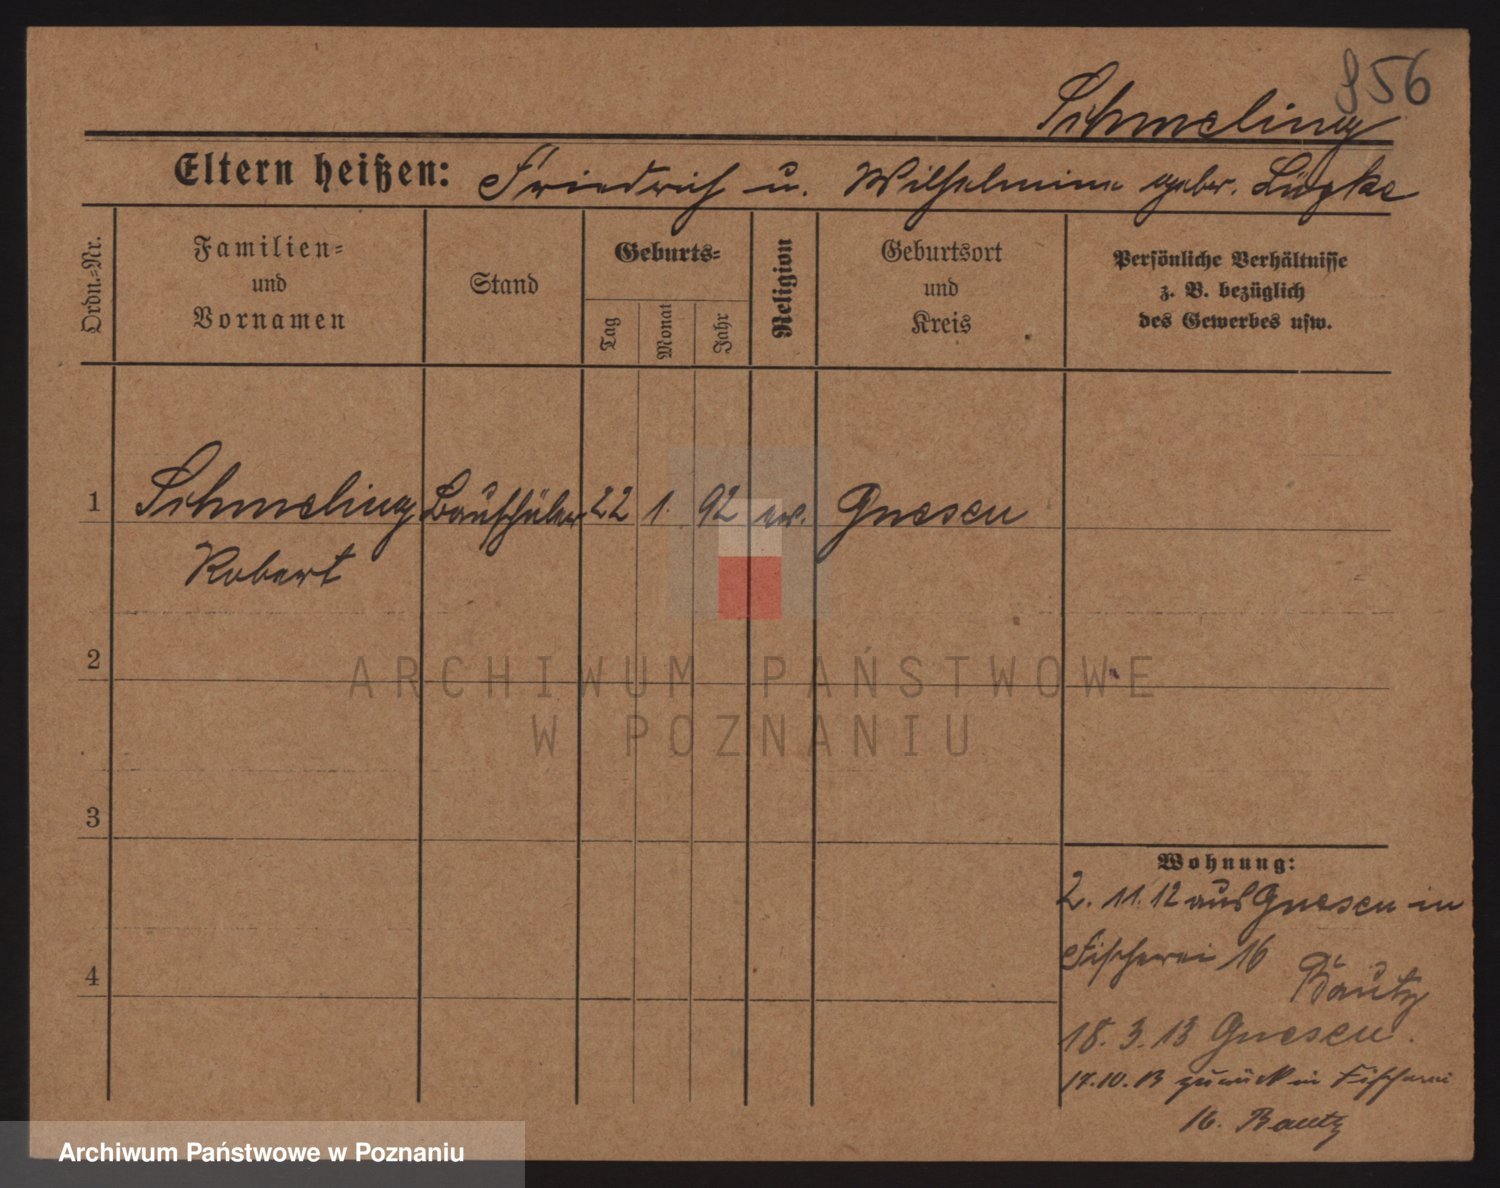 856
Schmeling
Eltern heißen: Friedrich u. Wilhelmine geber. Lüpke
Ordn.=Nr.
Familien=
und
Vornamen
Stand
Geburts=
Tag
Monat
Jahr
Religion
Geburtsort
und
Kreis
Persönliche Verhältnisse
z. B. bezüglich
des Gewerbes usw.
1 Schmeling Bauschüler 22 1. 92 ev. Gnesen
Robert
2
3
4
Wohnung:
2. 11. 12 aus Gnesen in
Fischerei 16
Bautz
18. 3. 13 Gnesen.
17.10.13 zurück in Fischerei
16. Bautz
ARCHIWUM PAŃSTWOWE
W POZNANIU
Archiwum Państwowe w Poznaniu